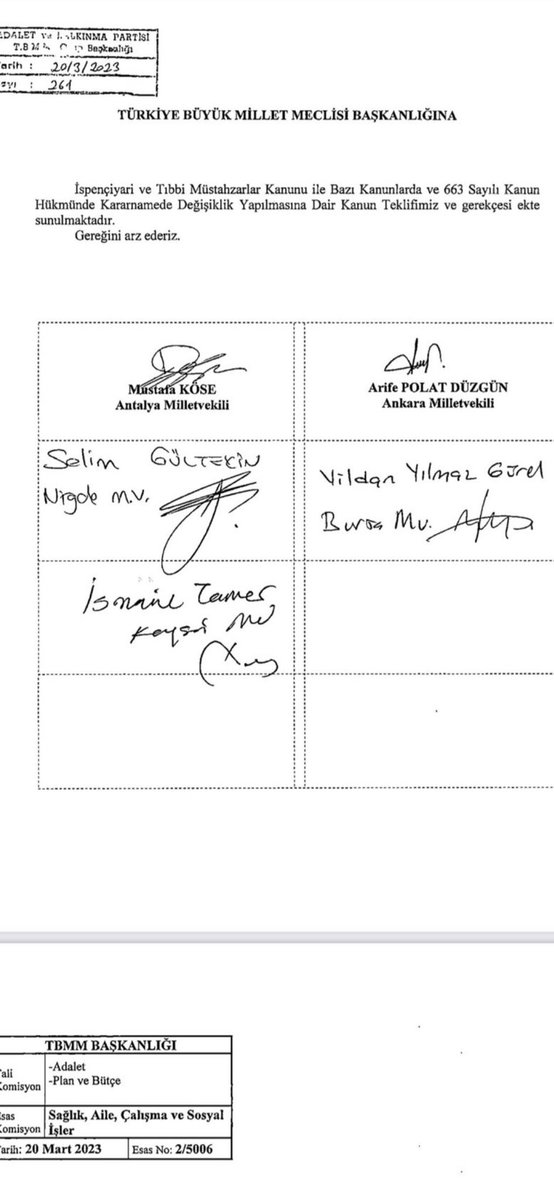 ADALET ve KALKINMA PARTİSİ
T.B.M.M. Grup Başkanlığı
Tarih : 20/3/2023
Sayı : 261
TÜRKİYE BÜYÜK MİLLET MECLİSİ BAŞKANLIĞINA
İspençiyari ve Tıbbi Müstahzarlar Kanunu ile Bazı Kanunlarda ve 663 Sayılı Kanun
Hükmünde Kararnamede Değişiklik Yapılmasına Dair Kanun Teklifimiz ve gerekçesi ekte
sunulmaktadır.
Gereğini arz ederiz.
Mustafa KÖSE
Antalya Milletvekili
Arife POLAT DÜZGÜN
Ankara Milletvekili
Selim GÜLTEKİN
Niğde m.v.
Vildan Yılmaz Gürel
Bursa Mv.
İsmail Tamer
Kayseri Mv
TBMM BAŞKANLIĞI
Tali
Komisyon
-Adalet
-Plan ve Bütçe
Esas
Komisyon
Sağlık, Aile, Çalışma ve Sosyal
İşler
Tarih: 20 Mart 2023
Esas No: 2/5006